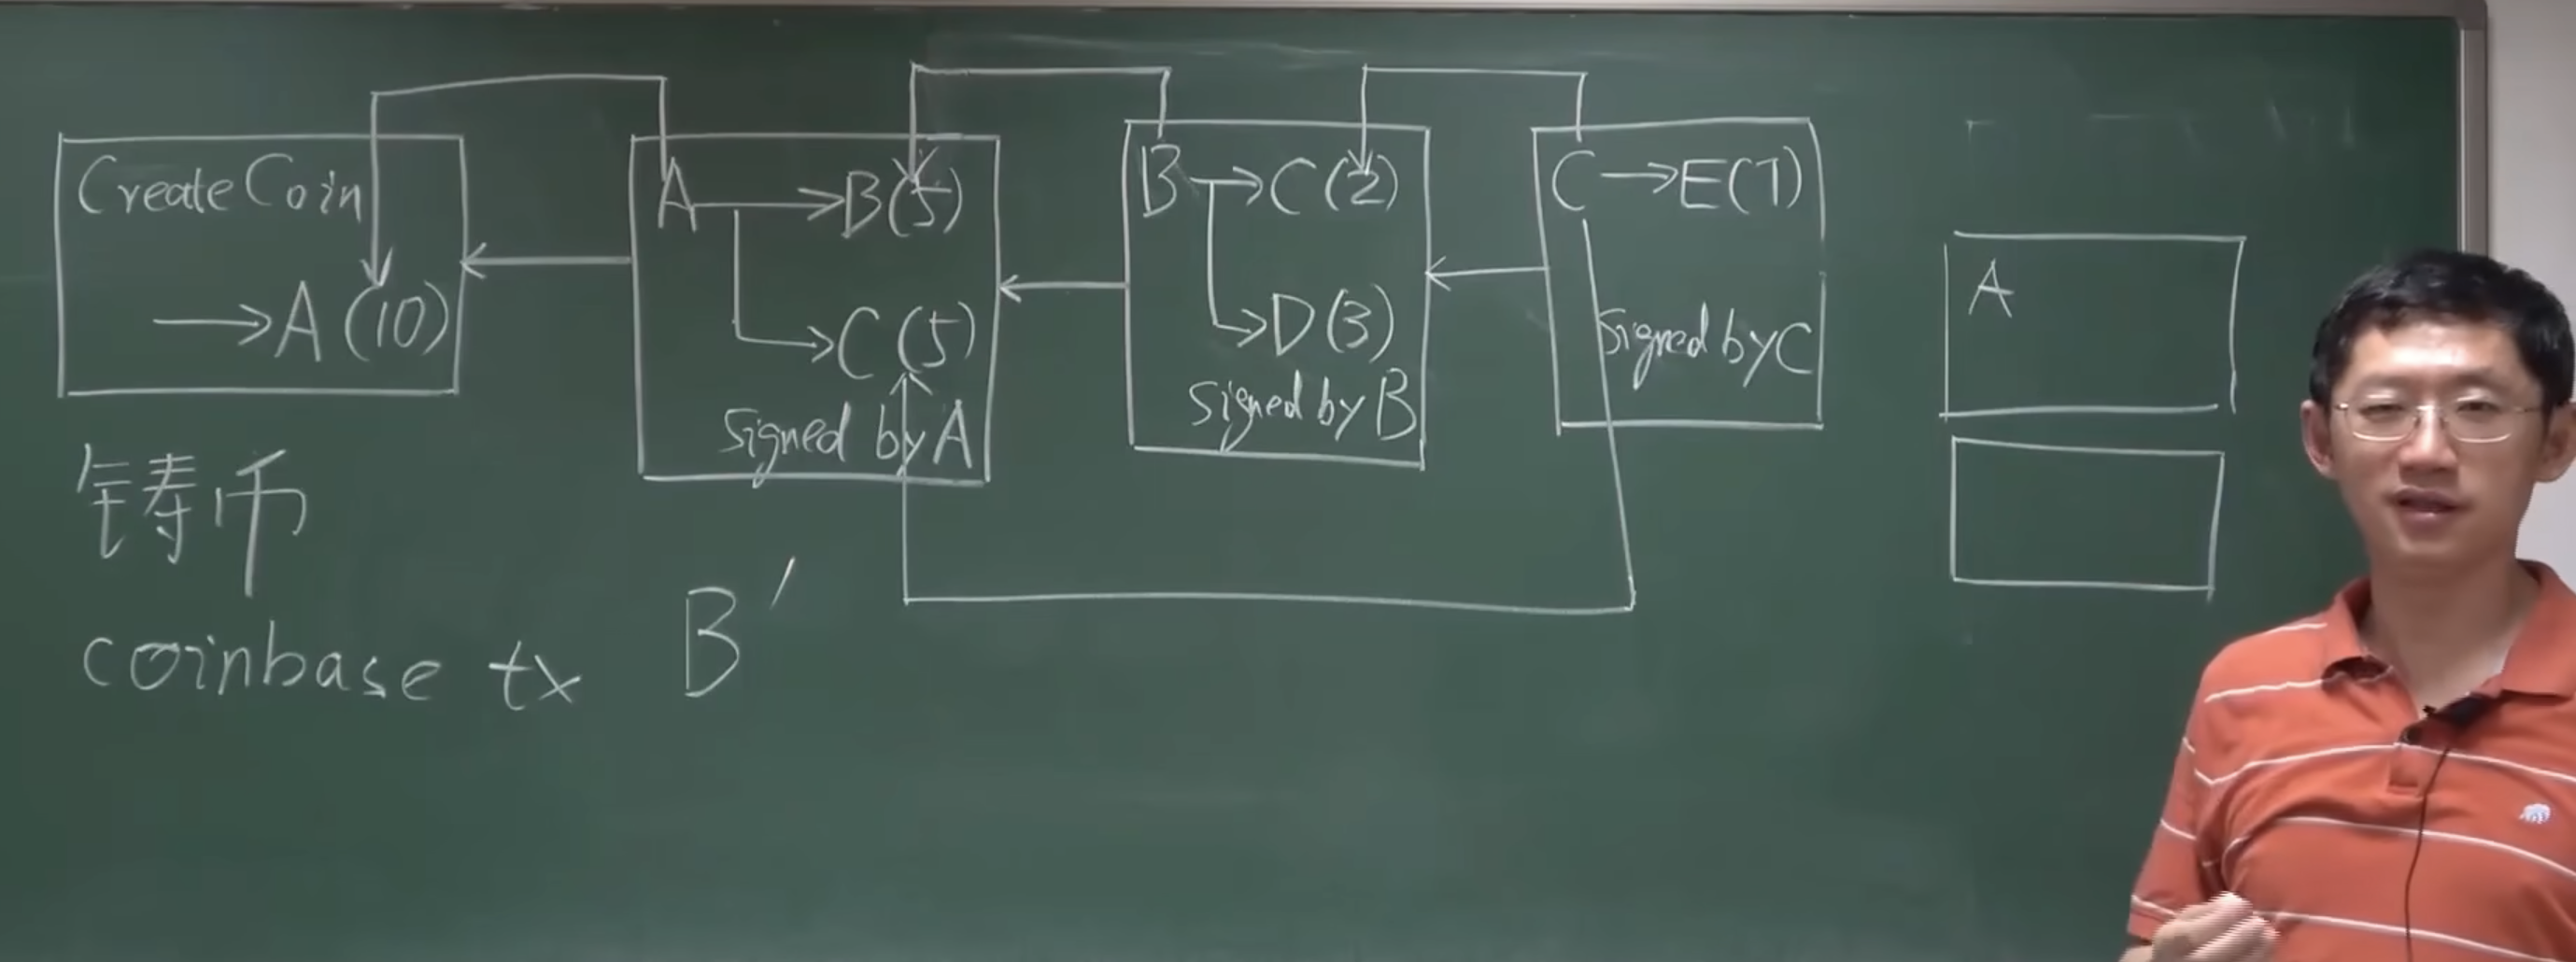 CreateCoin
→A(10)
A→B(5)
→C(5)
Signed by A
B→C(2)
→D(3)
Signed by B
C→E(7)
Signed by C
A
铸币
coinbase tx
B′